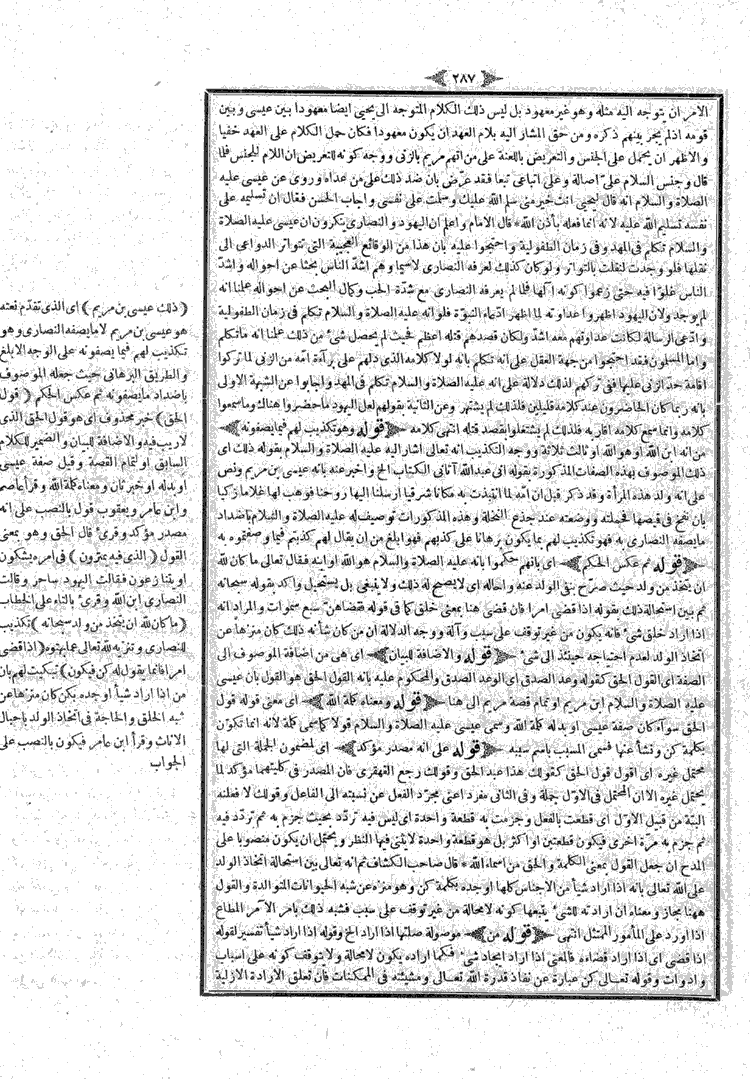 ٢٨٧
الامر ان يتوجه اليه مثله وهو غير معهود بل ليس ذلك الكلام المتوجه الى يحيى ايضا معهودا بين عيسى وبين
قومه اذ لم يجر بينهم ذكره ومن حق المشار اليه بلام العهد ان يكون معهودا فكان حمل الكلام على العهد خفيا
والاظهر ان يحمل على الجنس والتعريض باللعنة على من اتهم مريم بالزنى ووجه كونه للتعريض ان اللام للجنس فلما
قال وجنس السلام على اصالة وعلى اتباعى تبعا فقد عرّض بان ضد ذلك على من عداه وروى عن عيسى عليه
الصلاة والسلام انه قال ليحيى انت خير منى سلم الله عليك وسلمت على نفسى واجاب الحسن فقال ان تسليمه على
نفسه تسليم الله عليه لانه انما فعله بأذن الله * قال الامام واعلم ان اليهود والنصارى ينكرون ان عيسى عليه الصلاة
والسلام تكلم فى المهد وفى زمان الطفولية واحتجوا عليه بان هذا من الوقائع العجيبة التى تتواتر الدواعى الى
نقلها فلو وجدت لنقلت بالتواتر ولو كان كذلك لعرفه النصارى لاسيما وهم اشدّ الناس بحثا عن احواله واشدّ
الناس غلوّا فيه حتى زعموا كونه الها فلما لم يعرفه النصارى مع شدّة الحب وكمال البحث عن احواله علمنا انه
لم يوجد ولان اليهود اظهروا عداوته لما اظهر ادّعاء النبوّة فلو انه عليه الصلاة والسلام تكلم فى زمان الطفولية
وادّعى الرسالة لكانت عداوتهم معه اشد ولكان قصدهم قتله اعظم فحيث لم يحصل شئ من ذلك علمنا انه ما تكلم
واما المسلمون فقد احتجوا من جهة العقل على انه تكلم بانه لولا كلامه الذى دلهم على برآءة امه من الزنى لما تركوا
اقامة حدّ الزنى عليها ففى تركهم لذلك دلالة على انه عليه الصلاة والسلام تكلم فى المهد واجابوا عن الشبهة الاولى
بانه ربما كان الحاضرون عند كلامه قليلين فلذلك لم يشتهر وعن الثانية بقولهم لعل اليهود ما حضروا هناك وما سمعوا
كلامه وانما سمع كلامه اقاربه فلذلك لم يشتغلوا بقصد قتله انتهى كلامه قوله وهو تكذيب لهم فيما يصفونه
من انه ابن الله او هو الله او ثالث ثلاثة ووجه التكذيب انه تعالى اشار اليه عليه الصلاة والسلام بقوله ذلك اى
ذلك الموصوف بهذه الصفات المذكورة بقوله انى عبد الله آتانى الكتاب الخ واخبر عنه بانه عيسى بن مريم ونص
على انه ولد هذه المرأة وقد ذكر قبل ان امه لما انتبذت به مكانا شرقيا ارسلنا اليها روحنا فوهب لها غلاما زكيا
بان نفخ فى قيصها فحملته ووضعته عند جذع النخلة وهذه المذكورات توصيف له عليه الصلاة والسلام باضداد
مايصفه النصارى به فهو تكذيب لهم بما يكون برهانا على كذبهم فهو ابلغ من ان يقال لهم كذبتم فيما وصفتموه به
قوله ثم عكس الحكم اى بانهم حكموا بانه عليه الصلاة والسلام هو الله او ابنه فقال تعالى ما كان لله
ان يتخذ من ولد حيث صرّح بنفى الولد عنه واحاله اى لا يصح له ذلك ولا ينبغى بل يستحيل واكد بقوله سبحانه
ثم بين استحالة ذلك بقوله اذا قضى امرا فان قضى هنا بمعنى خلق كما فى قوله فقضاهن سبع سموات والمراد انه
اذا اراد خلق شئ فانه يكون من غير توقف على سبب وآلة ووجه الدلالة ان من كان شأنه ذلك كان منزها عن
اتخاذ الولد لعدم احتياجه حينئذ الى شئ قوله والاضافة للبيان اى هى من اضافة الموصوف الى
الصفة اى القول الحق كقوله وعد الصدق اى الوعد الصدق والمحكوم عليه بانه القول الحق هو القول بان عيسى
عليه الصلاة والسلام ابن مريم او تمام قصة مريم الى هنا قوله ومعناه كلة الله اى معنى قوله قول
الحق سوآء كان صفة عيسى او بدله كلة الله وسمى عيسى عليه الصلاة والسلام قولا كما سمى كلة لانه انما تكوّن
بكلمة كن ونشأ عنها فسمى المسبب باسم سببه قوله على انه مصدر مؤكد اى لمضمون الجملة التى لها
محتمل غيره اى اقول قول الحق كقولك هذا عبد الحق وقولك رجع القهقرى فان المصدر فى كليتهما مؤكد لما
يحتمل غيره الا ان المحتمل فى الاول جملة وفى الثانى مفرد اعنى مجرّد الفعل عن نسبته الى الفاعل وقولك لا فعلنه
البتة من قبيل الاوّل اى قطعت بالفعل وجزمت به قطعة واحدة اى ليس فيه تردّد بحيث جزم به ثم تردّد فيه
ثم جزم به مرّة اخرى فيكون قطعتين او اكثر بل هو قطعة واحدة لا يثنى فيها النظر ويحتمل ان يكون منصوبا على
المدح ان جعل القول بمعنى الكلمة والحق من اسماء الله * قال صاحب الكشاف ثم انه تعالى بين استحالة اتخاذ الولد
على الله تعالى بانه اذا اراد شيأ من الاجناس كلها اوجده بكلمة كن وهو منزه عن شبه الحيوانات المتوالدة والقول
ههنا مجاز ومعناه ان ارادته للشئ يتبعها كونه لا محالة من غير توقف على سبب فشبه ذلك بامر الآمر المطاع
اذا اورد على المأمور الممتثل انتهى قوله من موصولة صلتها اذا اراد الخ وقوله اذا اراد شيأ تفسير لقوله
اذا قضى اى اذا اراد قضاءه فالمعنى اذا اراد ايجاد شئ فكما اراده يكون لا محالة ولا يتوقف كونه على اسباب
وادوات وقوله تعالى كن عبارة عن نفاذ قدرة الله تعالى ومشيئته فى الممكنات فان تعلق الارادة الازلية
(ذلك عيسى بن مريم) اى الذى تقدّم نعته
هو عيسى بن مريم لا مايصفه النصارى وهو
تكذيب لهم فيما يصفونه على الوجه الابلغ
والطريق البرهانى حيث جعله الموصوف
باضداد مايصفونه ثم عكس الحكم (قول
الحق) خبر محذوف اى هو قول الحق الذى
لاريب فيه والاضافة للبيان والضمير للكلام
السابق او لتمام القصة وقيل صفة عيسى
او بدله او خبر ثان ومعناه كلة الله وقرأ عاصم
وابن عامر ويعقوب قول بالنصب على انه
مصدر مؤكد وقرئ قال الحق وهو بمعنى
القول (الذى فيه يمترون) فى امره يشكون
او يتنازعون فقالت اليهود ساحر وقالت
النصارى ابن الله وقرئ بالتاء على الخطاب
(ما كان لله ان يتخذ من ولد سبحانه) تكذيب
للنصارى وتنزيه لله تعالى عما بهتوه (اذا قضى
امرا فانما يقول له كن فيكون) تبكيت لهم بان
من اذا اراد شيأ اوجده بكن كان منزها عن
شبه الخلق والحاجة فى اتخاذ الولد باحبال
الاناث وقرأ ابن عامر فيكون بالنصب على
الجواب